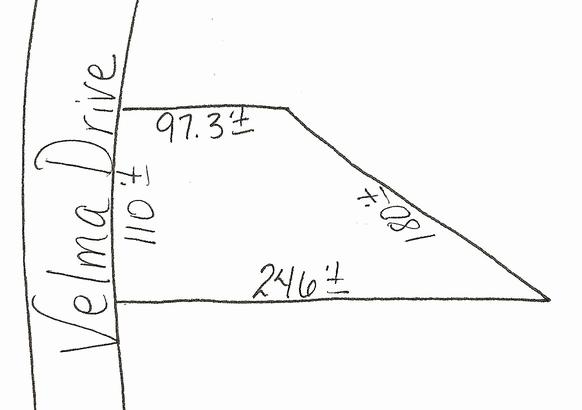 Velma Drive
97.3'±
110'±
180'±
246'±